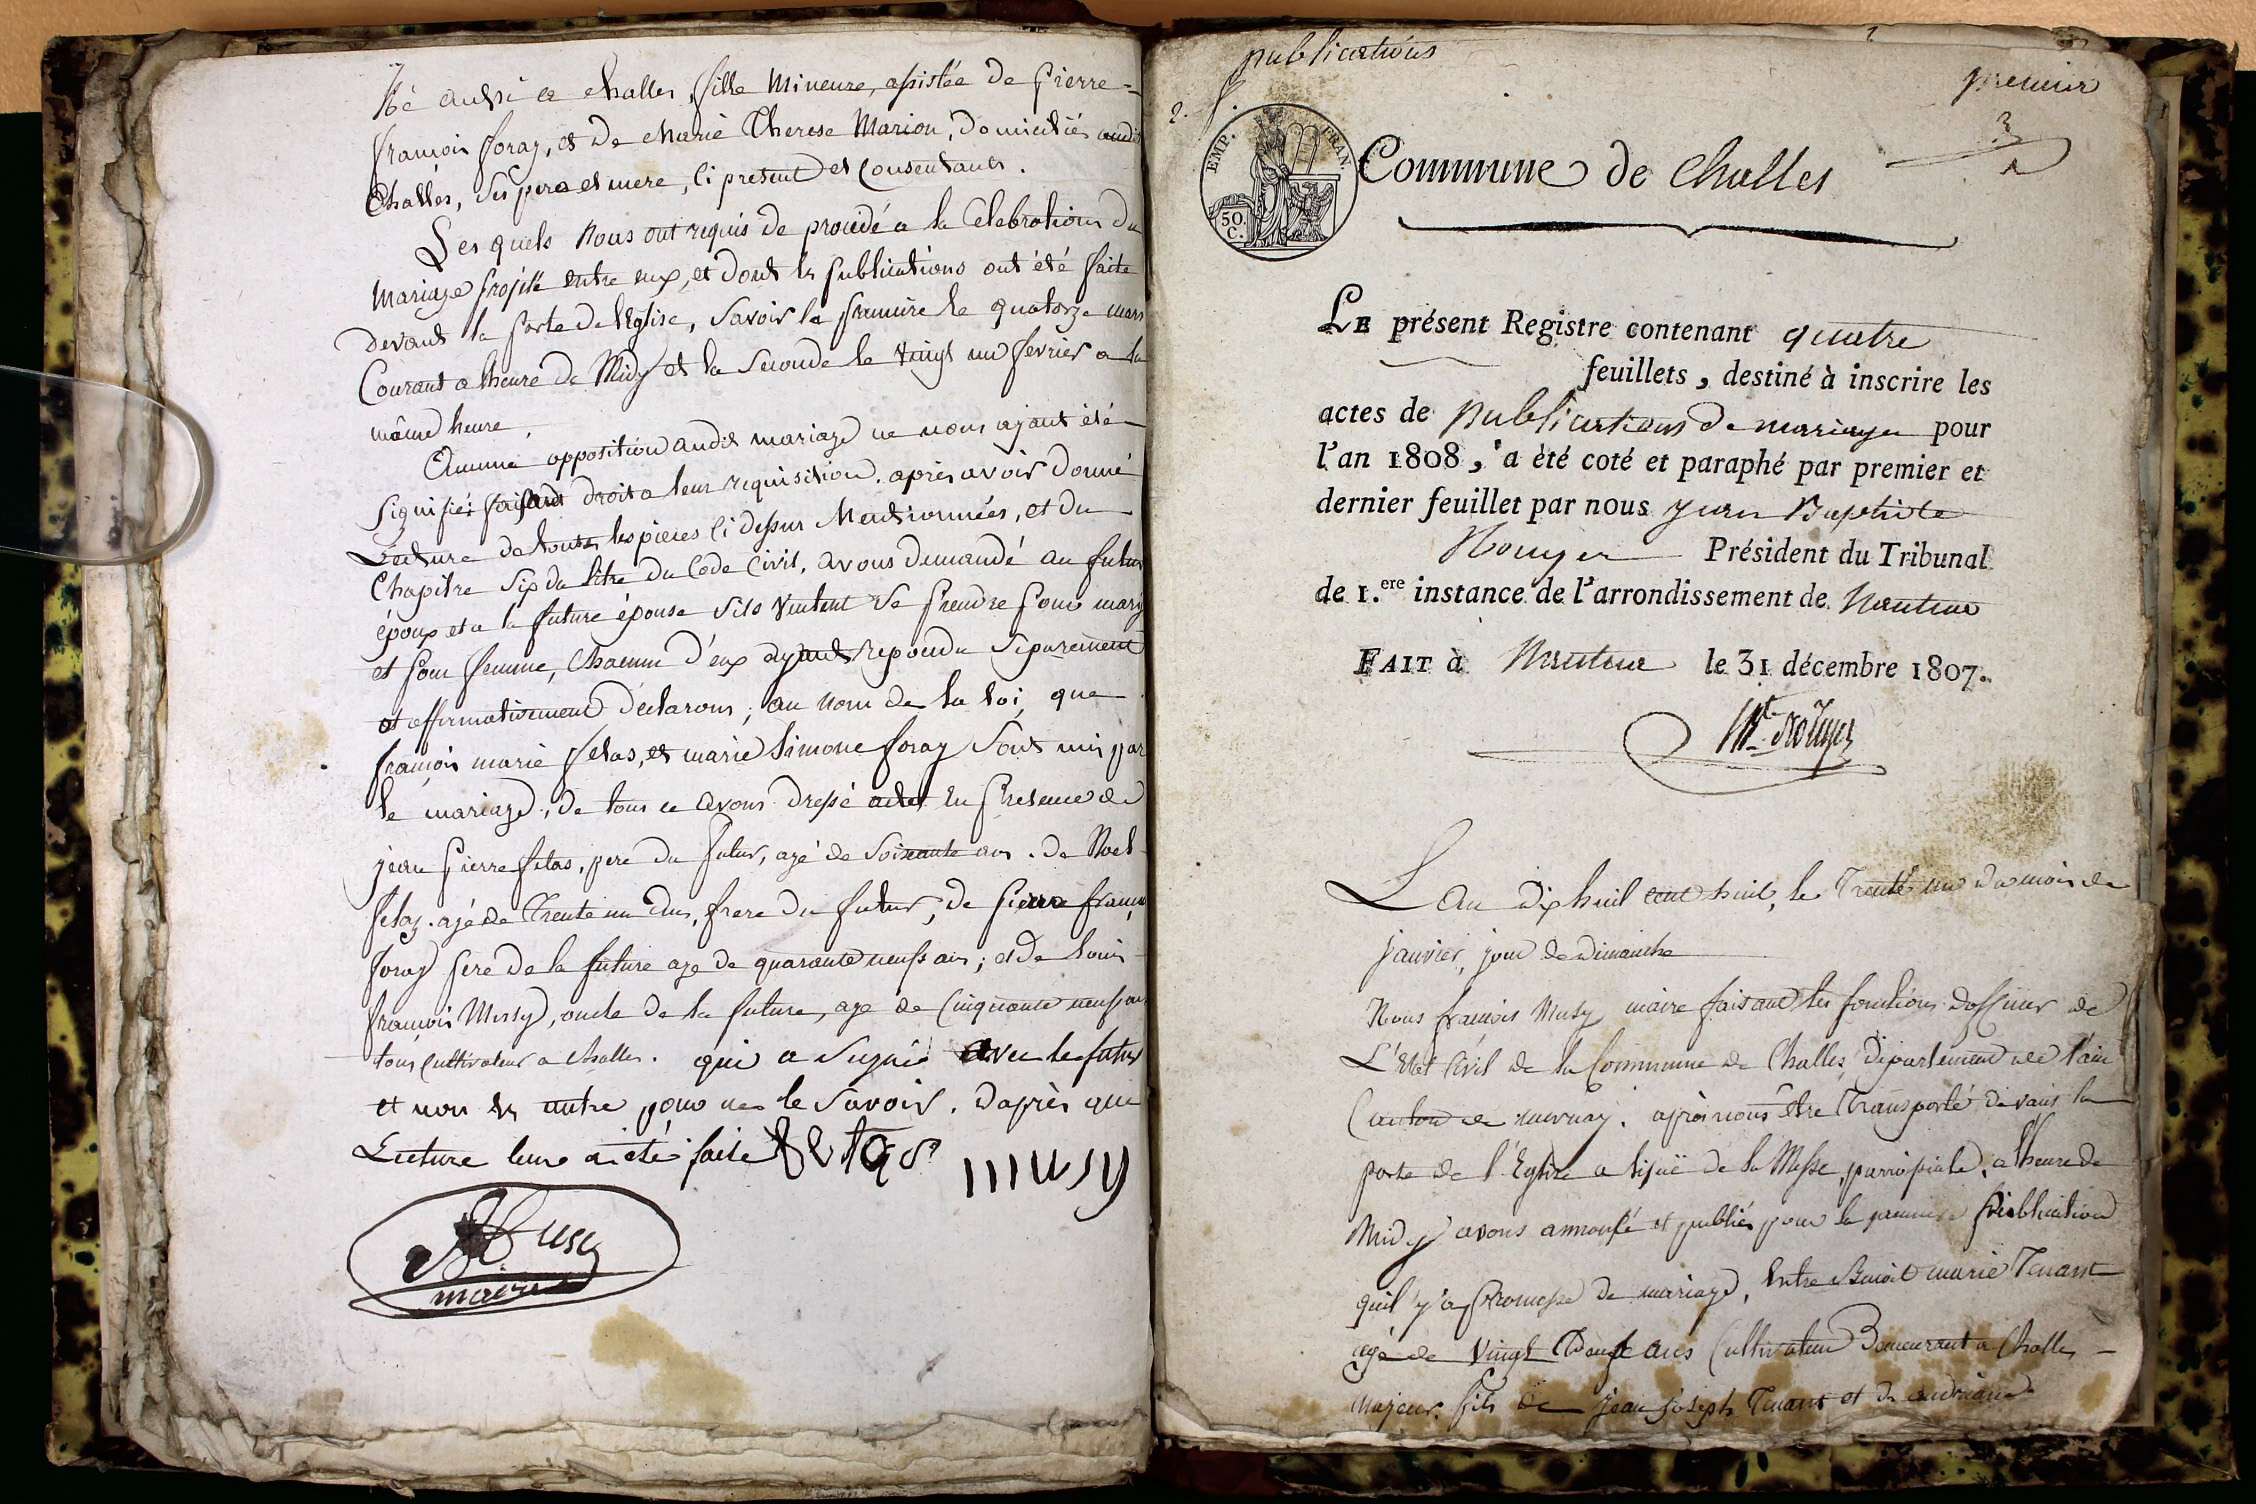 Né aussi a Challes, fille Mineure, assistée de pierre
françois foray, et de Marie Therese Marion, domiciliés audit
Challes, ses pere et mere, ci present et Consentants.
Les quels nous ont requis de procedé a la Celebration du
Mariage projété entre eux, et dont les publications ont été faite
devant la porte de l'Eglise, savoir la premiere le quatorze mars
Courant a lheure de Midy et la seconde le vingt un fevrier a la
même heure.
Aucune opposition audit mariage ne nous ayant été
signifiée faisant droit a leur requisition. après avoir donné
Lecture de toutes les pieces ci dessus Mentionnées, et du
Chapitre six du titre du Code Civil, avons demandé au futur
époux et a la future épouse sils veulent se prendre pour mary
et pour femme, chacun d'eux ayant repondu separement
et affirmativement déclarons, au nom de la loi, que
françois marie felas, et marie Simone foray sont unis par
le mariage, de tous ce avons dressé acte En presence de
jean pierre felas, pere du futur, agé de soixante ans. de Noel
felaz. agé de Trente un ans, frere du futur, de pierre françois
foray pere de la future age de quarante neuf ans; et de louis
françois Musy, oncle de la future, age de Cinquante neuf ans
tous Cultivateur a Challes. qui a signé avec le futur
et non les autre pour ne le savoir. daprès que
Lecture leur a été faite felas musy
Musy
maire
publications
premier
2.
EMP. FRAN.
50. C.
Commune de Challes
LE présent Registre contenant quatre
feuillets, destiné à inscrire les
actes de publications de mariages pour
l'an 1808, a été coté et paraphé par premier et
dernier feuillet par nous jean Baptiste
Rouyer Président du Tribunal
de 1.ere instance de l'arrondissement de Nantua
FAIT à Nantua le 31 décembre 1807.
Rouyer
L'an dix huit cent huit, le Trente un du mois de
janvier, jour de Dimanche
Nous françois Musy maire faisant les fonctions dofficier de
L'Etat Civil de la Commune de Challes, département de l'ain
Canton de . après nous être Transporté devant la
porte de l'Eglise a lissuë de la Messe parroissiale, a lheure de
Midy avons annoncé et publiés pour la premiere publication
quil y a promesse de mariage, Entre Benoit marie Tenant
agé de vingt Deux ans Cultivateur Demeurant a Challes
majeur. fils de jean joseph Tenant et de